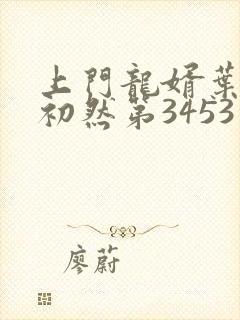 上門龍婿葉
初然第3453
廖蔚